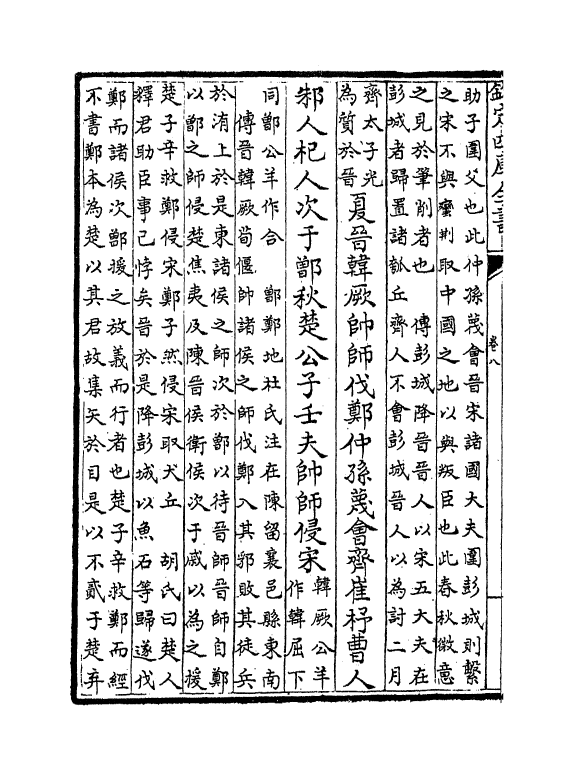 欽定四庫全書
卷八
助子圍父也此仲孫蔑會晉宋諸國大夫圍彭城則繫
之宋不與蠻荆取中國之地以與叛臣也此春秋微意
之見於筆削者也　傳彭城降晉晉人以宋五大夫在
彭城者歸置諸瓠丘　齊人不會彭城晉人以為討二月
齊太子光
為質於晉
夏晉韓厥帥師伐鄭仲孫蔑會齊崔杼曹人
邾人杞人次于鄫秋楚公子壬夫帥師侵宋
韓厥公羊
作韓屈下
同鄫公羊作合　鄫鄭地杜氏注在陳留襄邑縣東南
傳晉韓厥荀偃帥諸侯之師伐鄭入其郛敗其徒兵
於洧上於是東諸侯之師次於鄫以待晉師晉師自鄭
以鄫之師侵楚焦夷及陳晉侯衛侯次于戚以為之援
楚子辛救鄭侵宋鄭子然侵宋取犬丘　胡氏曰楚人
釋君助臣事已悖矣晉於是降彭城以魚石等歸遂伐
鄭而諸侯次鄫援之放義而行者也楚子辛救鄭而經
不書鄭本為楚以其君故集矢於目是以不貳于楚弃